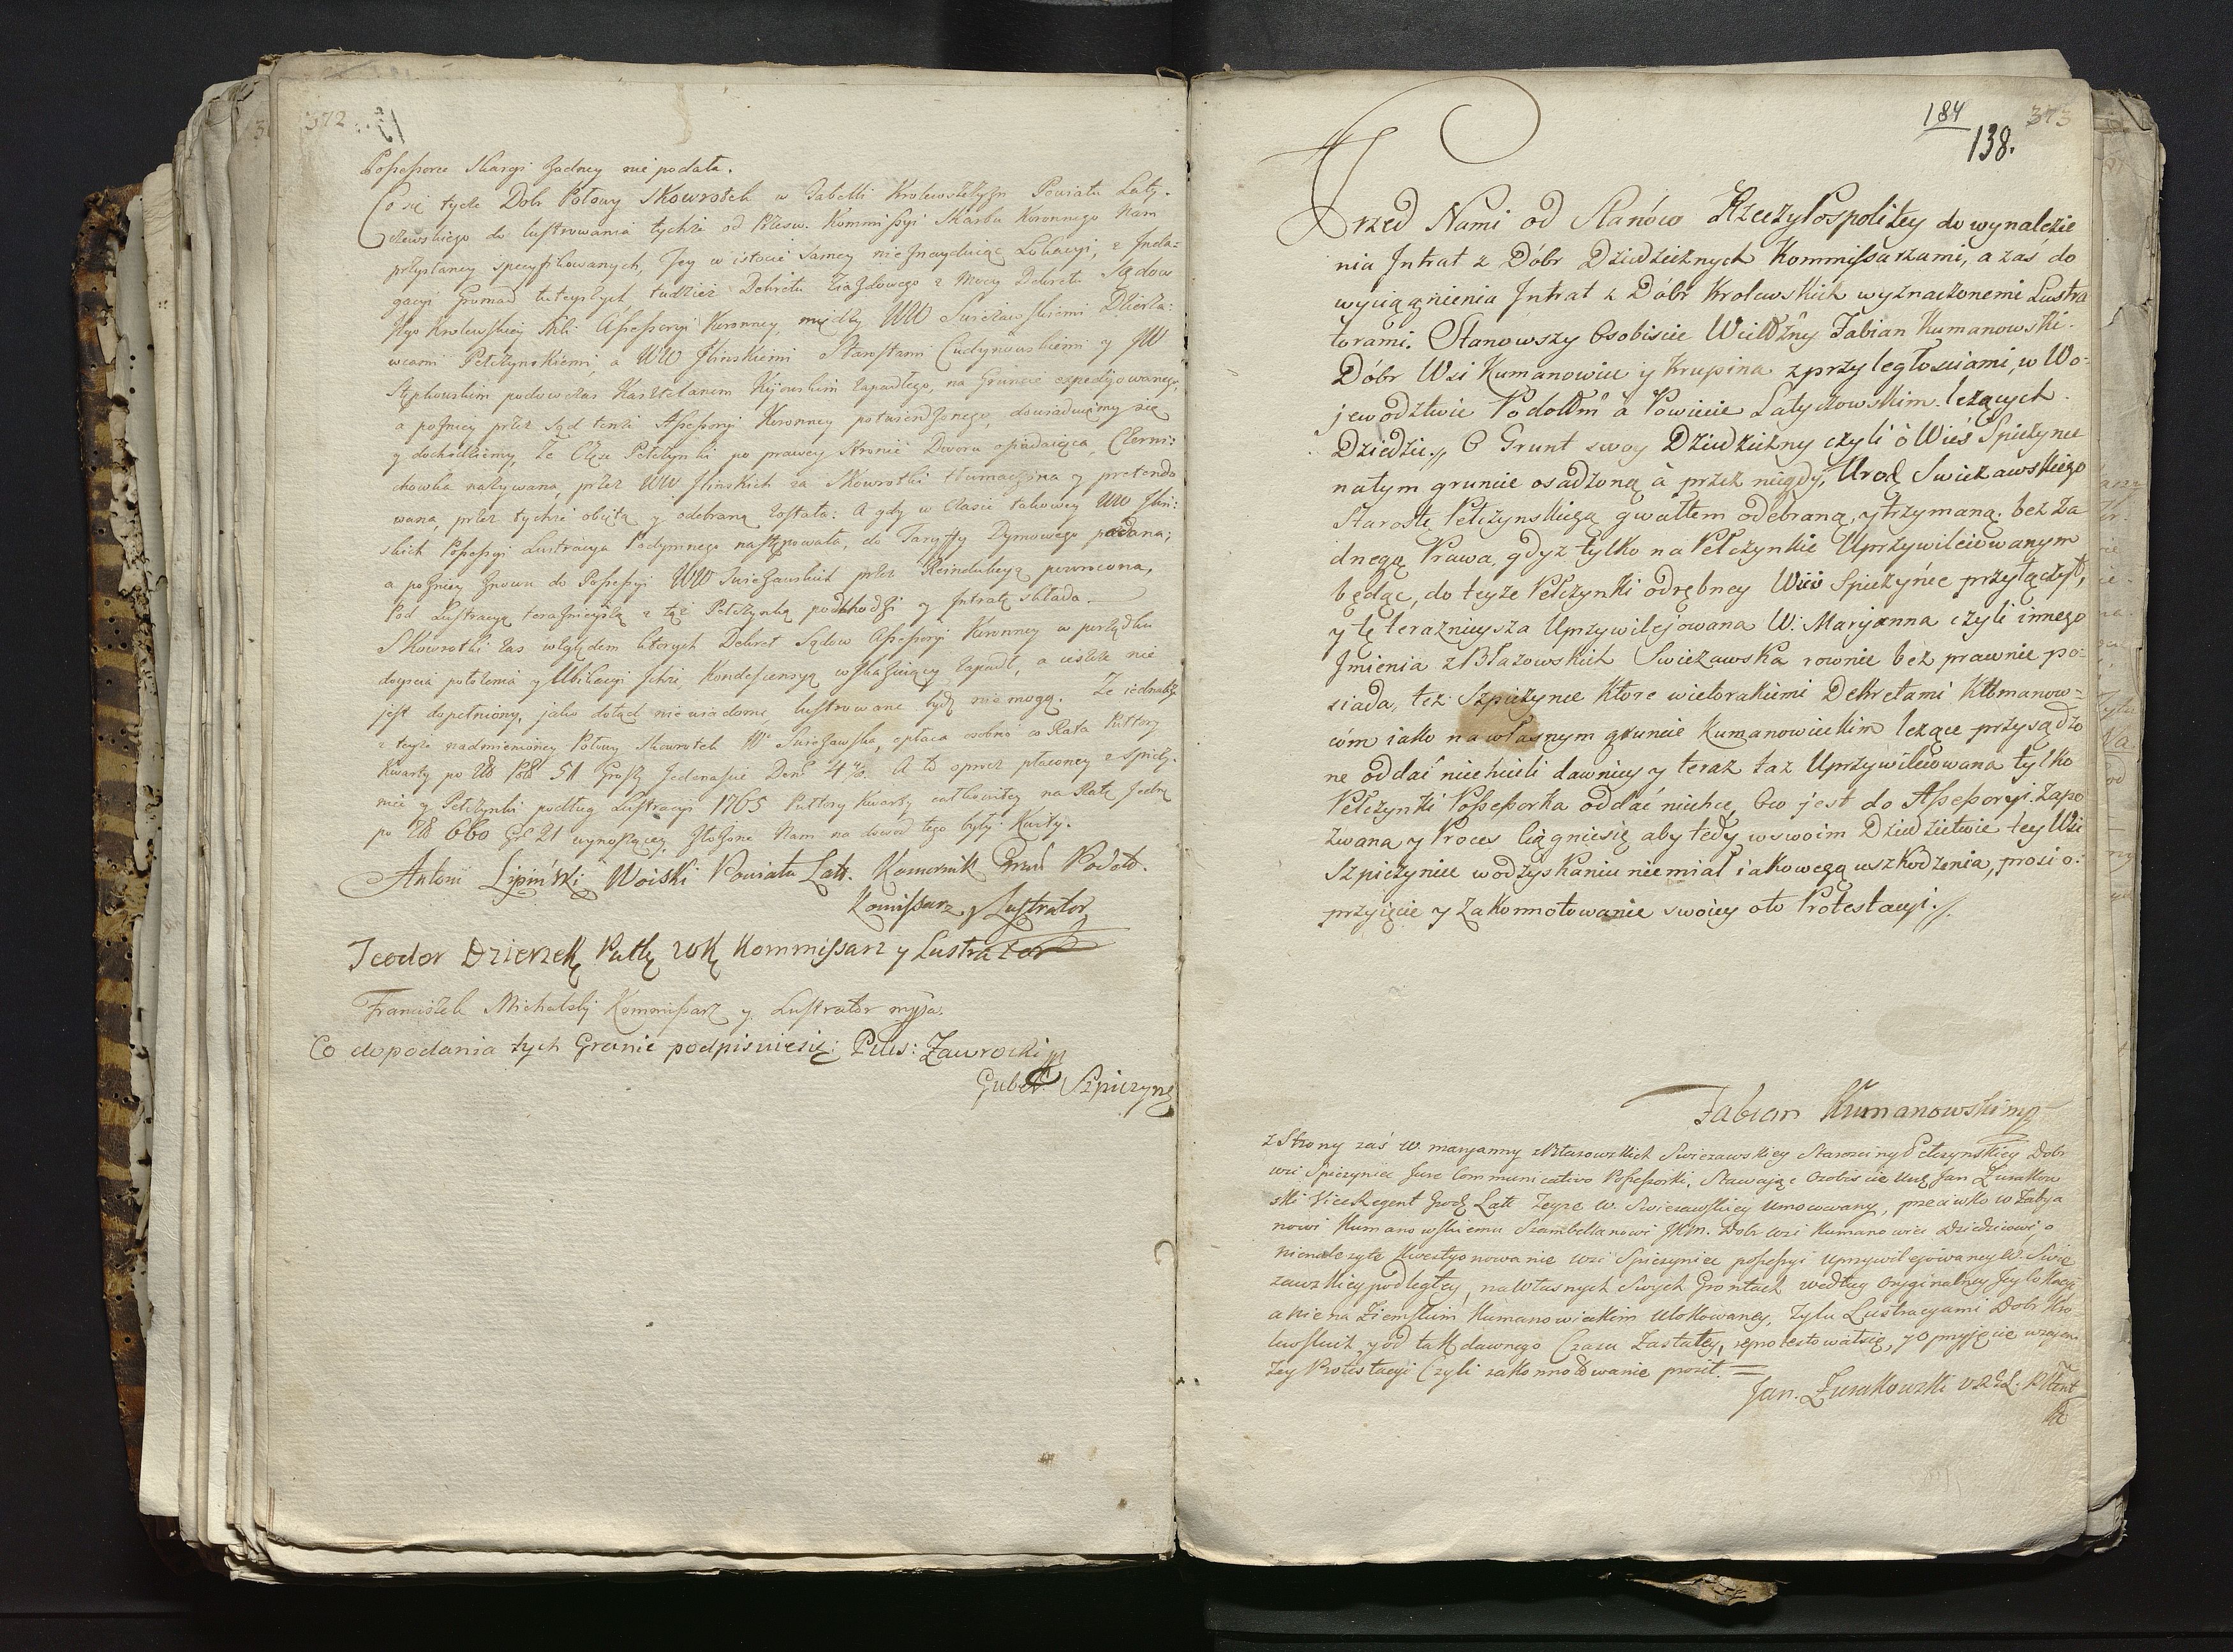 372
Possessorce Skargi żadney nie podała.
Co się tycze Dobr Połowy Skowrotek w Tabelli Krolewszczyzn Powiatu Laty-
czewskiego do lustrowania tychże od Przesw. Kommissyi Skarbu Koronnego Nam
przysłaney specyfikowanych, Jey w istocie samey nieznayduiąc Lokacyi, z Inda-
gacyi Gromad tuteyszych, tudzież Dekretu Ziazdowego z Mocy Dekretu Sądow
Jego Krolewskiey Mci Assessoryi Koronney, między WW Swieżawskiemi Dzierża-
wcami Pełczynskiemi, a WW Ilinskiemi Starostami Cudynowskiemi y JW
Stępkowskim podowczas Kasztelanem Kijowskim zapadłego, na Gruncie expedijowanego,
a pozniey przez Sąd tenże Assessoryi Koronney potwierdzonego, dowiaduiemy się
y dochodziemy, że Częsc Pełczynki po prawey stronie Dworu osiadaiąca, Czerni-
chowka nazywana, przez WW Ilinskich za Skowrotki tłumaczona y pretendo
wana, przez tychże obięta y odebrana została: A gdy w Czasie takowey WW Ilin-
skich Possessyi Lustracya Podymnego następowała, do Taryffy Dymowego podana;
a pozniey znowu do Possessyi WW Swieżawskich przez Reindukcyą powrocona,
Pod Lustracyą teraznieyszą z tąż Pełczynką podchodzi y Intratę składa.
Skowrotki zas względem ktorych Dekret Sądow Assessoryi Koronney w porządku
doyscia położenia y Ubikacyi ichże, Kondescensyą wskazuiący zapadł, a ieszcze nie
jest dopełniony, jako dotąd niewiadome, lustrowane bydź nie mogą. Ze iednakże
z teyże nadmienioney Połowy Skowrotek Wa Swieżawska, opłaca osobno co Rata Pułtory
Kwarty po Złł Poll 51 Groszy Jedenascie Den. 4 ⅘. A to oprocz płaconey z Spiczy-
niec y Pełczynki podług Lustracyi 1765 Pułtory Kwarty całkowitey na Ratę Jedną
po Złł 660 Gr 21 wynoszącey, złożone Nam na dowod tego były Kwity.
Antoni Lipiński Woiski Powiatu Lat. Komornik Gran Podol.
Komissarz y Lustrator
Teodor Dzierzek Kommissarz y Lustrator
Franciszek Michalski Kommissarz y Lustrator mppa.
Co dopodania tych Granic podpisuiesię: Zawrocki mp
Guber. Szpiczyne
184 373
138.
Przed Nami od Stanów Rzeczypospolitey do wynalezie
nia Intrat z Dóbr Dziedzicznych Kommissarzami, a zaś do
wyciągnienia Intrat z Dóbr Krolewskich wyznaczonemi Lustra
torami. Stanowszy Osobiscie Wielmżny Fabian Kumanowski
Dóbr Wsi Kumanowiec y Krupina z przyległosciami, w Wo-
jewodztwie Podolm à Powiecie Latyczowskim leżących
Dziedzic, O Grunt swoy Dziedziczny czyli o Wieś Spiczynce
natym gruncie osadzoną à przez niegdy Urod Swieżawskiego
Starostę Pełczynskiego gwałtem odebraną, y trzymaną bez ża
dnego Prawa, gdyż tylko na Pełczynkie Uprzywileiowanym
będąc, do teyże Pełczynki odrębney Wieś Spiczyńce przyłączył,
y tę teraznieysza Uprzywilejowana W. Maryanna czyli innego
Jmienia z Błazowskich Swieżawska rownie bez prawnie po-
siada, też Szpiczynce ktore wielorakiemi Dekretami Kumanow-
cóm iako na własnym gruncie Kumanowieckim leżące przysądzo
ne oddać niechcieli dawniey y teraz taż Uprzywileiowana tylko
Pełczynki Possessorka oddać niechce, bo jest do Assessoryi Zapo
zwana y Proces Ciągniesię aby tedy w swoim Dziedzictwie tey Wsi
Szpiczyniec w odzyskaniu niemiał iakowego uszkodzenia, prosi o
przyięcie y zakonnotowanie swoiey oto Protestacyi.
Fabian Kumanowski mp
z Strony zaś W. maryanny z Błazowskich Swiezawskiey Starosciny Pełczynskiey Dobr
wsi Spiczyniec Jure Communicativo Possessorki, Stawaiąc Osobiscie Jan Zurakow
ski ViceRegent Grodz Lat Teyze W. Swiezawskiey Umocowany, przeciwko W Faby a
nowi Kumanowskiemu Szambellanowi JKM. Dobr wsi Kumanowiec Dziedzicowi, o
nienależyte Kwestyonowanie wsi Spiczyniec possessyi uprzywilejowaney W. Swie
zawskiey podległey, na Własnych Swych Gruntach według Oryginalney Jey lokacyi
a nie na Ziemskim Kumanowieckim Ulokowaney, Tylu Lustracyami Dobr Kro
lewskich, y od tak dawnego Czasu Zastałey, reprotestowałsię, y o przyjęcie wzajem
Tey Protestacyi Czyli zakonnotowanie prosił.
Jan Zurakowski